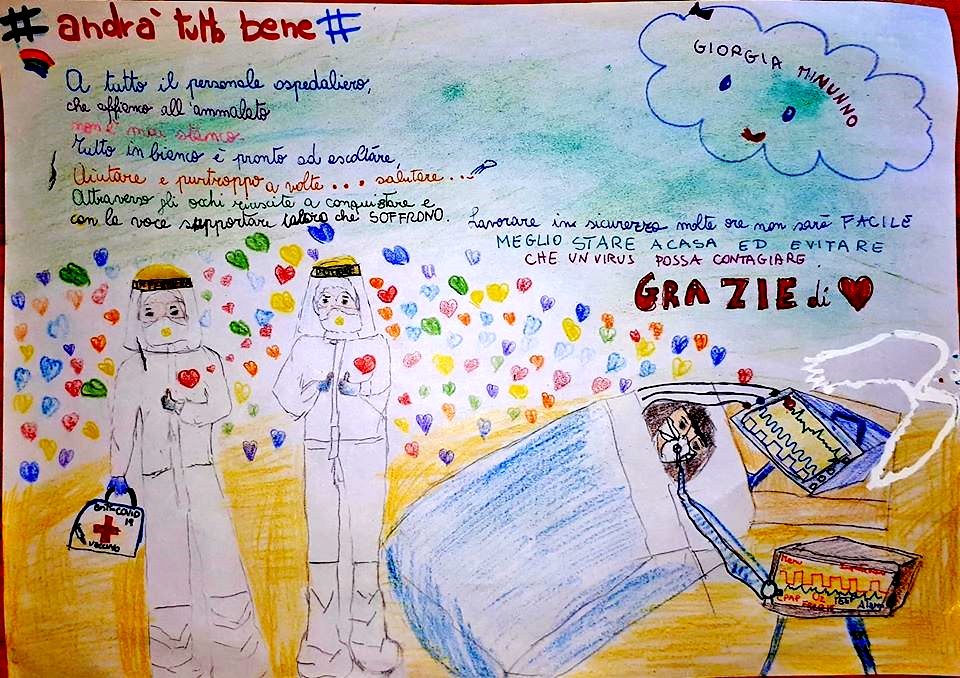 # andrà tutto bene #
GIORGIA MINUNNO
A tutto il personale ospedaliero,
che affianco all'ammalato
non è mai stanco
Tutto in bianco è pronto ad ascoltare,
Aiutare e purtroppo a volte... salutare...
Attraverso gli occhi riuscite a conquistare e
con la voce supportare coloro che SOFFRONO.
Lavorare in sicurezza molte ore non sarà FACILE
MEGLIO STARE A CASA ED EVITARE
CHE UN VIRUS POSSA CONTAGIARE.
GRAZIE di
anti-COVID
19
vaccino
Menu
CPAP O2
Alarm